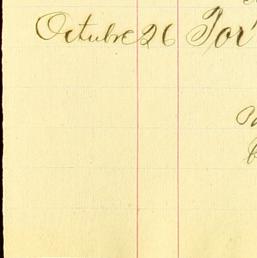 Octubre 26 Por